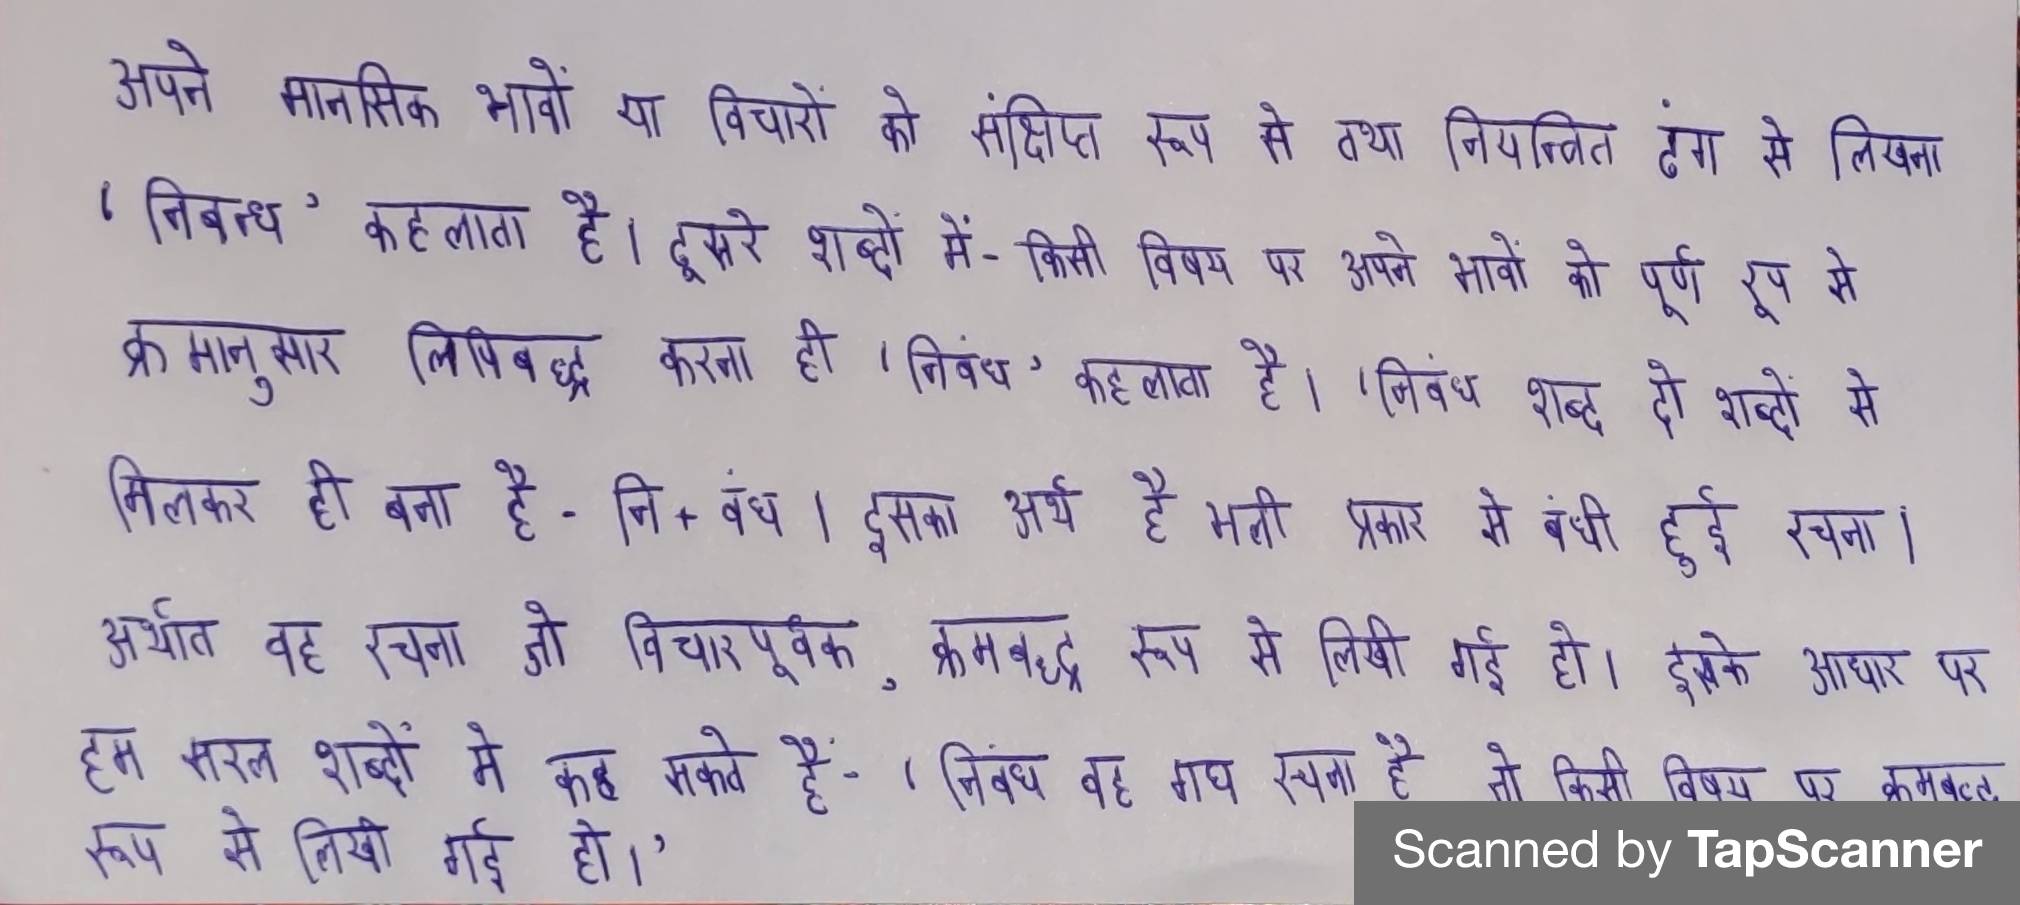 अपने मानसिक भावों या विचारों को संक्षिप्त रूप से तथा नियन्त्रित ढंग से लिखना
'निबन्ध' कहलाता है। दूसरे शब्दों में- किसी विषय पर अपने भावों को पूर्ण रूप से
क्रमानुसार लिपिबद्ध करना ही 'निबंध' कहलाता है। 'निबंध शब्द दो शब्दों से
मिलकर ही बना है - नि + बंध। इसका अर्थ है भली प्रकार से बंधी हुई रचना।
अर्थात वह रचना जो विचारपूर्वक, क्रमबद्ध रूप से लिखी गई हो। इसके आधार पर
हम सरल शब्दों मे कह सकते हैं- 'निबंध वह गद्य रचना है जो किसी विषय पर क्रमबद्ध
रूप से लिखी गई हो।'
Scanned by TapScanner